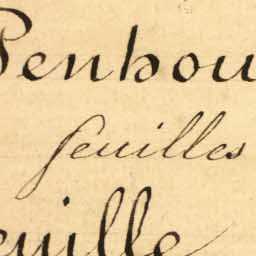 Penhou
feuilles
euille